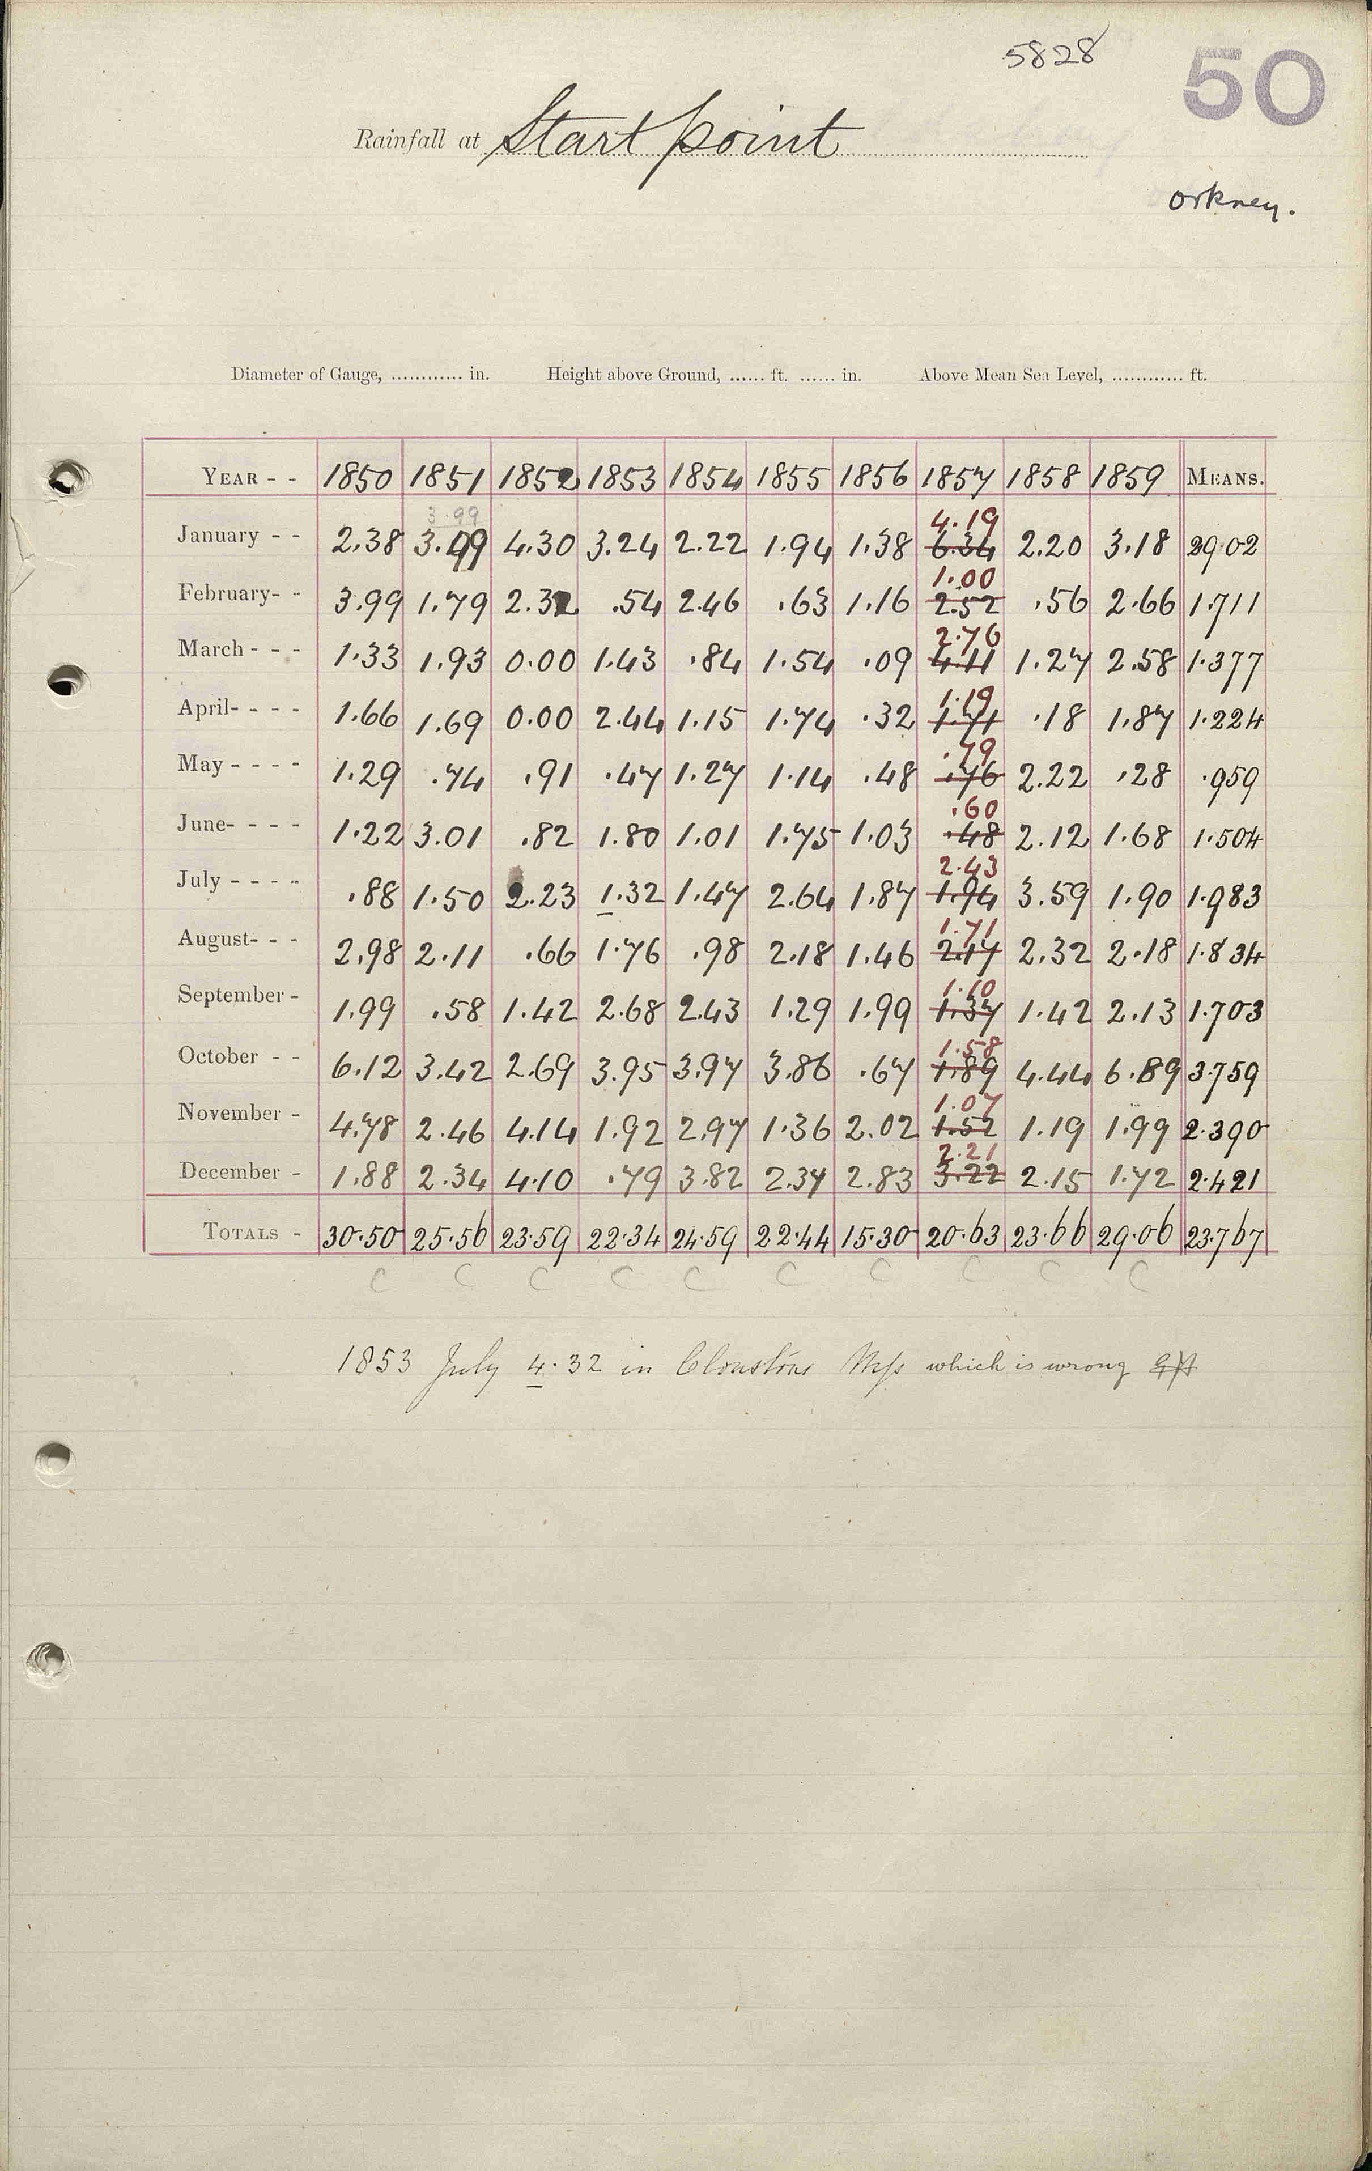 5828
50
Rainfall at Start point
Orkney.
Diameter of Gauge, ............ in. Height above Ground, ...... ft. ...... in. Above Mean Sea Level, ............ ft.
YEAR - - 1850 1851 1852 1853 1854 1855 1856 1857 1858 1859 MEANS.
3.99 4.19
January - - 2.38 3.99 4.30 3.24 2.22 1.94 1.38 6.34 2.20 3.18 2902
1.00
February- - 3.99 1.79 2.32 .54 2.46 .63 1.16 2.52 .56 2.66 1.711
2.76
March - - - 1.33 1.93 0.00 1.43 .84 1.54 .09 4.11 1.27 2.58 1.377
1.19
April- - - - 1.66 1.69 0.00 2.44 1.15 1.74 .32 1.71 .18 1.87 1.224
.79
May - - - - 1.29 .74 .91 .47 1.27 1.14 .48 .76 2.22 .28 .959
.60
June- - - - 1.22 3.01 .82 1.80 1.01 1.75 1.03 .48 2.12 1.68 1.504
2.43
July - - - - .88 1.50 2.23 1.32 1.47 2.64 1.87 1.94 3.59 1.90 1.983
1.71
August- - - 2.98 2.11 .66 1.76 .98 2.18 1.46 2.17 2.32 2.18 1.834
1.10
September - 1.99 .58 1.42 2.68 2.43 1.29 1.99 1.37 1.42 2.13 1.703
1.58
October - - 6.12 3.42 2.69 3.95 3.97 3.86 .67 1.89 4.44 6.89 3.759
1.07
November - 4.78 2.46 4.14 1.92 2.97 1.36 2.02 1.52 1.19 1.99 2.390
2.21
December - 1.88 2.34 4.10 .79 3.82 2.37 2.83 3.22 2.15 1.72 2.421
TOTALS - 30.50 25.56 23.59 22.34 24.59 22.44 15.30 20.63 23.66 29.06 23.767
C C C C C C C C C C
1853 July 4.32 in Clouston's Mss which is wrong